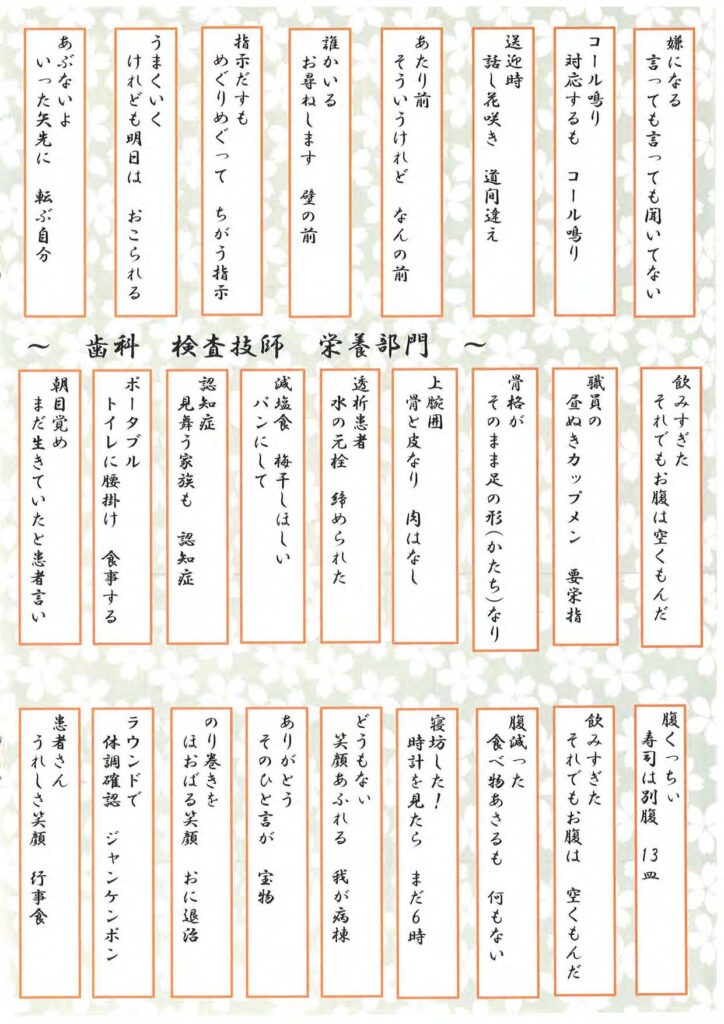 嫌になる
言っても言っても聞いてない
コール鳴り
対応するも　コール鳴り
送迎時
話し花咲き　道間違え
あたり前
そういうけれど　なんの前
誰かいる
お尋ねします　壁の前
指示だすも
めぐりめぐって　ちがう指示
うまくいく
けれども明日は　おこられる
あぶないよ
いった矢先に　転ぶ自分
～　歯科　検査技師　栄養部門　～
飲みすぎた
それでもお腹は空くもんだ
職員の
昼ぬきカップメン　要栄指
骨格が
そのまま足の形(かたち)なり
上腕囲
骨と皮なり　肉はなし
透析患者
水の元栓　締められた
減塩食　梅干しほしい
パンにして
認知症
見舞う家族も　認知症
ポータブル
トイレに腰掛け　食事する
朝目覚め
まだ生きていたと患者言い
腹くっちい
寿司は別腹　13皿
飲みすぎた
それでもお腹は　空くもんだ
腹減った
食べ物あさるも　何もない
寝坊した！
時計を見たら　まだ6時
どうもない
笑顔あふれる　我が病棟
ありがとう
そのひと言が　宝物
のり巻きを
ほおばる笑顔　おに退治
ラウンドで
体調確認　ジャンケンポン
患者さん
うれしさ笑顔　行事食